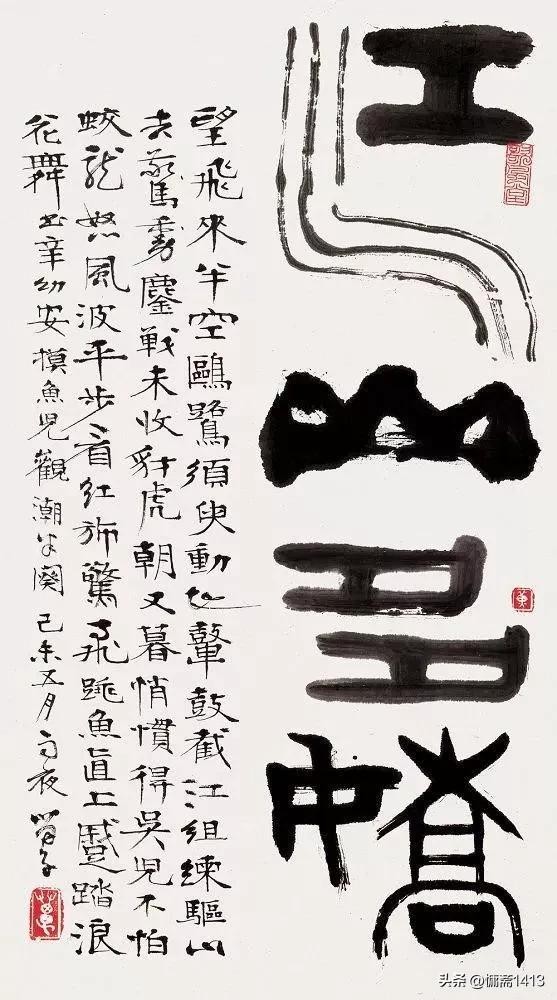 江山多嬌
望飛來半空鷗鷺須臾動地鼙鼓截江組練驅山
去驚動鏖戰未收虎朝又暮悄慣得吳兒不怕
蛟龍怒風波平步看紅旆驚飛跳魚直上蹙踏浪
花舞 書辛幼安摸魚兒觀潮半闋 己未五月雨夜 苗子
头条 @慵斋1413